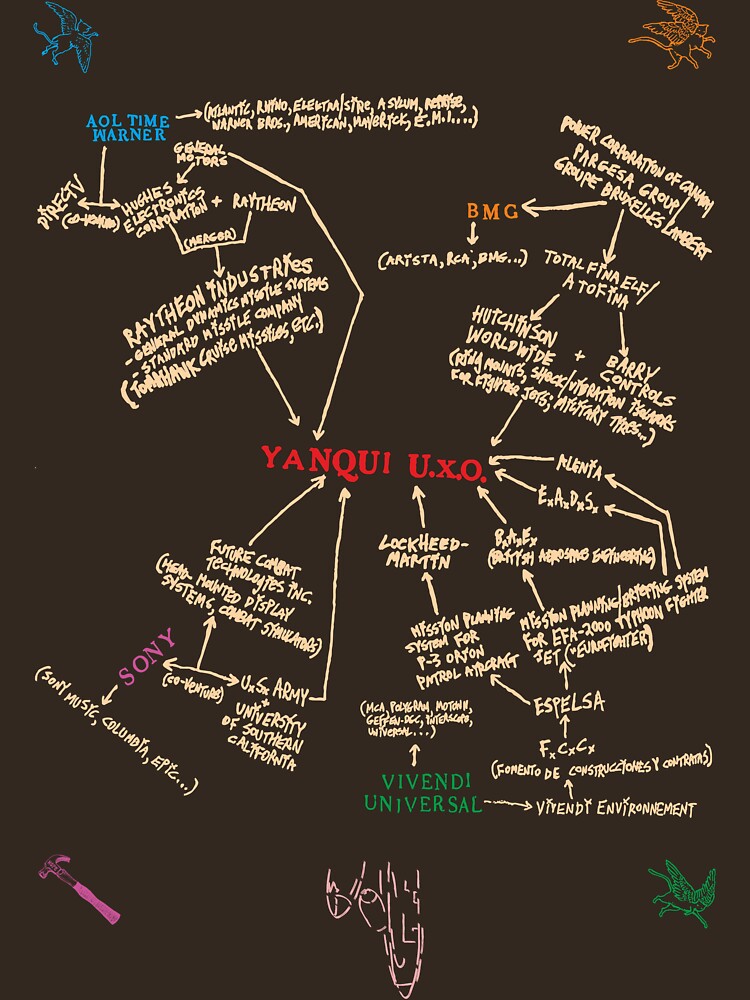 AOL TIME
WARNER
(ATLANTIC, RHINO, ELEKTRA/SIRE, ASYLUM, REPRISE,
WARNER BROS., AMERICAN, MAVERICK, E.M.I....)
GENERAL
MOTORS
DIRECTV
(CO-VENTURE)
HUGHES
ELECTRONICS
CORPORATION
+ RAYTHEON
(MERGER)
RAYTHEON INDUSTRIES
- GENERAL DYNAMICS MISSILE SYSTEMS
- STANDARD MISSILE COMPANY
(TOMAHAWK CRUISE MISSILES, ETC.)
POWER CORPORATION OF CANADA/
PARGESA GROUP/
GROUPE BRUXELLES LAMBERT
BMG
(ARISTA, RCA, BMG...)
TOTAL FINA ELF/
ATOFINA
HUTCHINSON
WORLDWIDE
+
BARRY
CONTROLS
(RING MOUNTS, SHOCK/VIBRATION ISOLATORS
FOR FIGHTER JETS, MILITARY TIRES...)
YANQUI U.X.O.
ALENIA
E.A.D.S.
B.A.E.
(BRITISH AEROSPACE ENGINEERING)
LOCKHEED-
MARTIN
FUTURE COMBAT
TECHNOLOGIES INC.
(HEAD-MOUNTED DISPLAY
SYSTEMS, COMBAT SIMULATORS)
MISSION PLANNING
SYSTEM FOR
P-3 ORION
PATROL AIRCRAFT
MISSION PLANNING/BRIEFING SYSTEM
FOR EFA-2000 TYPHOON FIGHTER
JET ("EUROFIGHTER")
SONY
(SONY MUSIC, COLUMBIA, EPIC...)
(CO-VENTURE)
U.S. ARMY
+
UNIVERSITY
OF SOUTHERN
CALIFORNIA
(MCA, POLYGRAM, MOTOWN,
GEFFEN-DGC, INTERSCOPE,
UNIVERSAL...)
ESPELSA
F.C.C.
(FOMENTO DE CONSTRUCCIONES Y CONTRATAS)
VIVENDI
UNIVERSAL
VIVENDI ENVIRONNEMENT